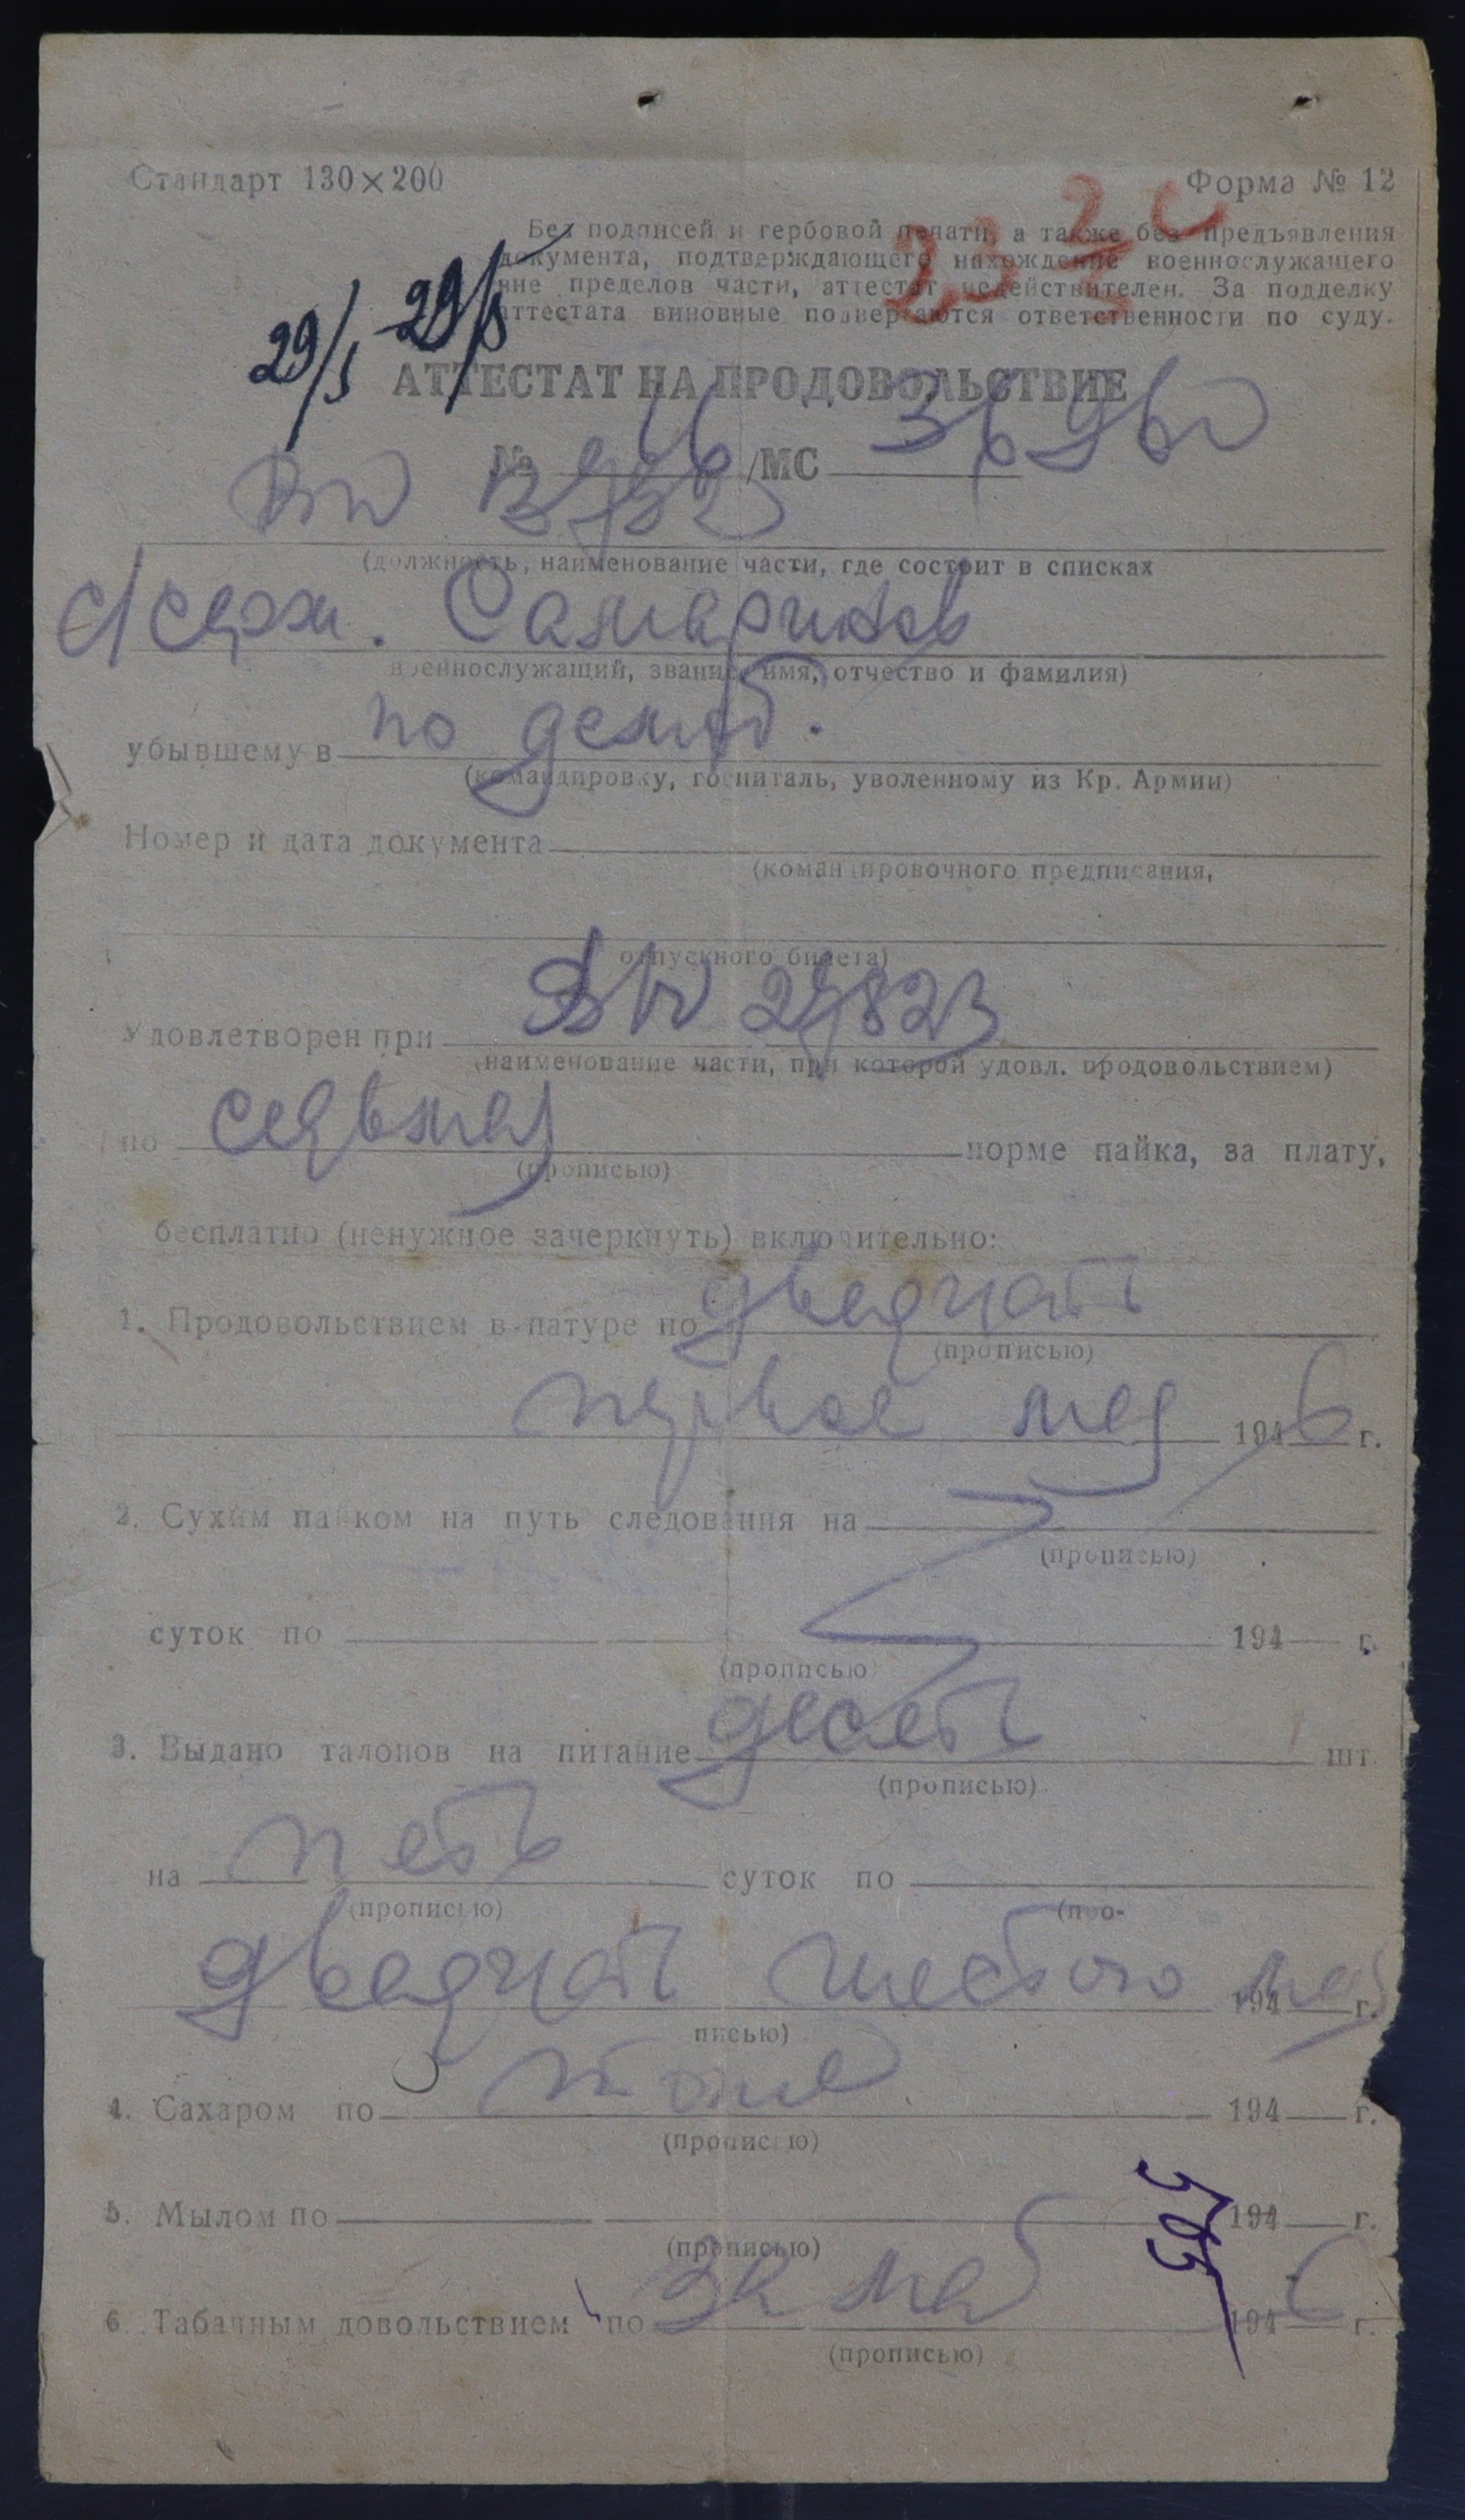 Стандарт 130×200
Форма № 12
232с
Без подписей и гербовой печати, а также без предъявления
документа, подтверждающего нахождение военнослужащего
вне пределов части, аттестат недействителен. За подделку
аттестата виновные подвергаются ответственности по суду.
29/5 29/5
АТТЕСТАТ НА ПРОДОВОЛЬСТВИЕ
№ /МС
(должность, наименование части, где состоит в списках
с/серж.
военнослужащий, звание, имя, отчество и фамилия)
убывшему в по демоб.
(командировку, госпиталь, уволенному из Кр. Армии)
Номер и дата документа
(командировочного предписания,
отпускного билета)
Удовлетворен при 29823
(наименование части, при которой удовл. продовольствием)
по седьмая норме пайка, за плату,
(прописью)
бесплатно (ненужное зачеркнуть) включительно:
1. Продовольствием в натуре по двадцать
(прописью)
первое мая 1946 г.
2. Сухим пайком на путь следования на
(прописью)
суток по 194 г.
(прописью)
3. Выдано талонов на питание десеть шт.
(прописью)
на петь суток по
(прописью) (про-
двадцать шестого мая 194 г.
писью)
4. Сахаром по тоже 194 г.
(прописью)
5. Мылом по 194 г.
(прописью)
6. Табачным довольствием по мая 1946 г.
(прописью)